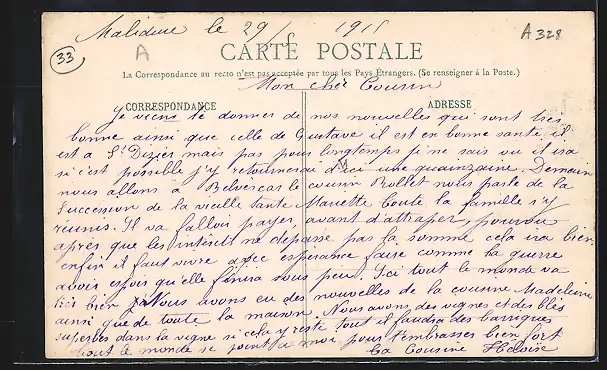 Malidure le 29/5 1915
33 A A 328
CARTE POSTALE
La Correspondance au recto n'est pas acceptée par tous les Pays Étrangers. (Se renseigner à la Poste.)
Mon cher Cousin
CORRESPONDANCE ADRESSE
Je viens te donner de nos nouvelles qui sont très
bonne ainsi que celle de Gustave il est en bonne santé il
est a St Dizier mais pas pour longtemps je ne sais ou il ira
si c'est possible j'y retournerai d'ici une quainzaine. Demain
nous allons à le cousin Rollet nous parle de la
succession de la vieille tante Mariette toute la famille s'y
réunis. Il va falloir payer avant d'attraper, pourvu
après que les intérêts ne dépasse pas la somme cela ira bien
enfin il faut vivre avec espérance faire comme la guerre
avoir espoir qu'elle finira sous peu. Ici tout le monde va
très bien Nous avons eu des nouvelles de la cousine Madeleine
ainsi que de toute la maison. Nous avons des vignes et des blés
superbes dans la vigne si cela y reste tout il faudra des barriques
tout le monde se joint a moi pour t'embrasses bien fort
ta Cousine Héloïse